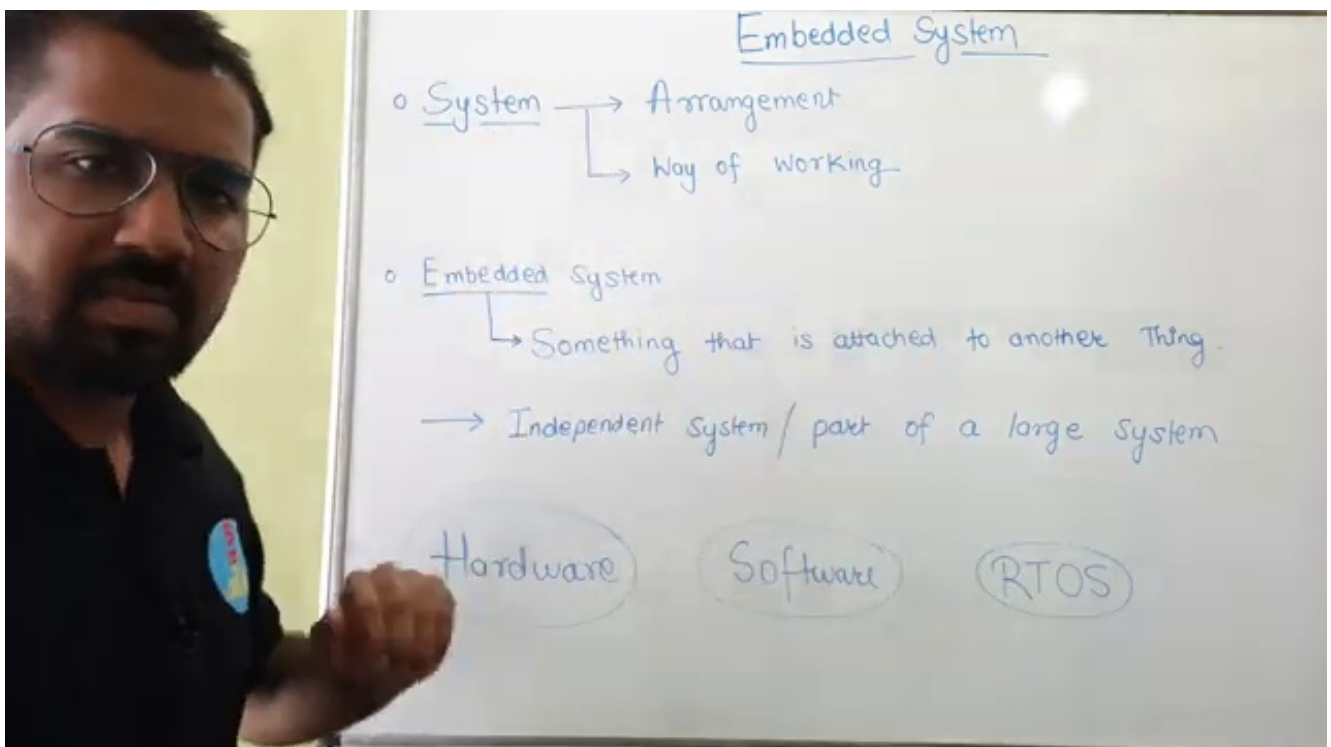 Embedded System
o System → Arrangement
→ Way of working
o Embedded System
→ Something that is attached to another Thing.
→ Independent System / part of a large System
Hardware Software RTOS